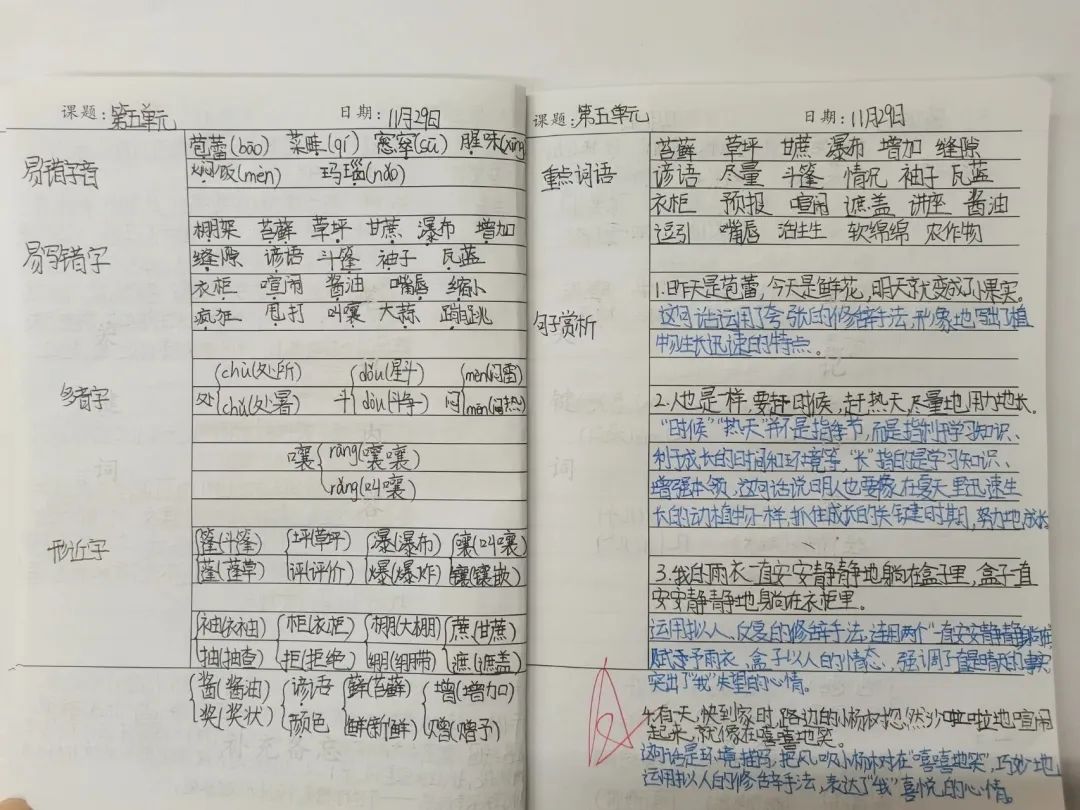 课题：第五单元
日期：11月29日
易错字音
苞蕾(bāo) 菜畦(qí) 窸窣(sū) 腥味(xīng
焖饭(mèn) 玛瑙(nǎo)
易写错字
棚架 苔藓 草坪 甘蔗 瀑布 增加
缝隙 谚语 斗篷 袖子 瓦蓝
衣柜 喧闹 酱油 嘴唇 缩小
疯狂 甩打 叫嚷 大蒜 蹦跳
多音字
处 chù(处所) 斗 dǒu(星斗) 闷 mèn(闷雷)
chǔ(处暑) dòu(斗争) mēn(闷热)
嚷 rāng(嚷嚷)
rǎng(叫嚷)
形近字
篷(斗篷) 坪(草坪) 瀑(瀑布) 嚷(叫嚷)
蓬(蓬草) 评(评价) 爆(爆炸) 镶(镶嵌)
袖(衣袖) 柜(衣柜) 棚(大棚) 蔗(甘蔗)
抽(抽查) 拒(拒绝) 绷(绷带) 遮(遮盖)
酱(酱油) 谚语 藓(苔藓) 增(增加)
奖(奖状) 颜色 鲜(新鲜) 赠(赠予)
课题：第五单元
日期：11月29日
重点词语
苔藓 草坪 甘蔗 瀑布 增加 缝隙
谚语 尽量 斗篷 情况 袖子 瓦蓝
衣柜 预报 喧闹 遮盖 讲座 酱油
逗引 嘴唇 活生生 软绵绵 农作物
句子赏析
1.昨天是苞蕾,今天是鲜花,明天就变成了小果实。
这句话运用了夸张的修辞手法,形象地写出了植
物生长迅速的特点。
2.人也是一样,要赶时候,赶热天,尽量地用力地长。
“时候”“热天”并不是指季节,而是指利于学习知识、
利于成长的时间和环境等,“长”指的是学习知识、
增强本领,这句话说明人也要像在夏天里迅速生
长的动植物一样,抓住成长的关键时期,努力地成长
3.我的雨衣一直安安静静地躺在盒子里,盒子一直
安安静静地躺在衣柜里。
运用拟人、反复的修辞手法,连用两个“一直安安静静
赋予雨衣、盒子以人的情态,强调了一直是晴天的事实
突出了“我”失望的心情。
4.有一天,快到家时,路边的小杨树忽然沙啦啦地喧闹
起来,就像在嘻嘻地笑。
这句话是环境描写,把风吹小杨树对在“嘻嘻地笑”,巧妙地
运用拟人的修辞手法,表达了“我”喜悦的心情。